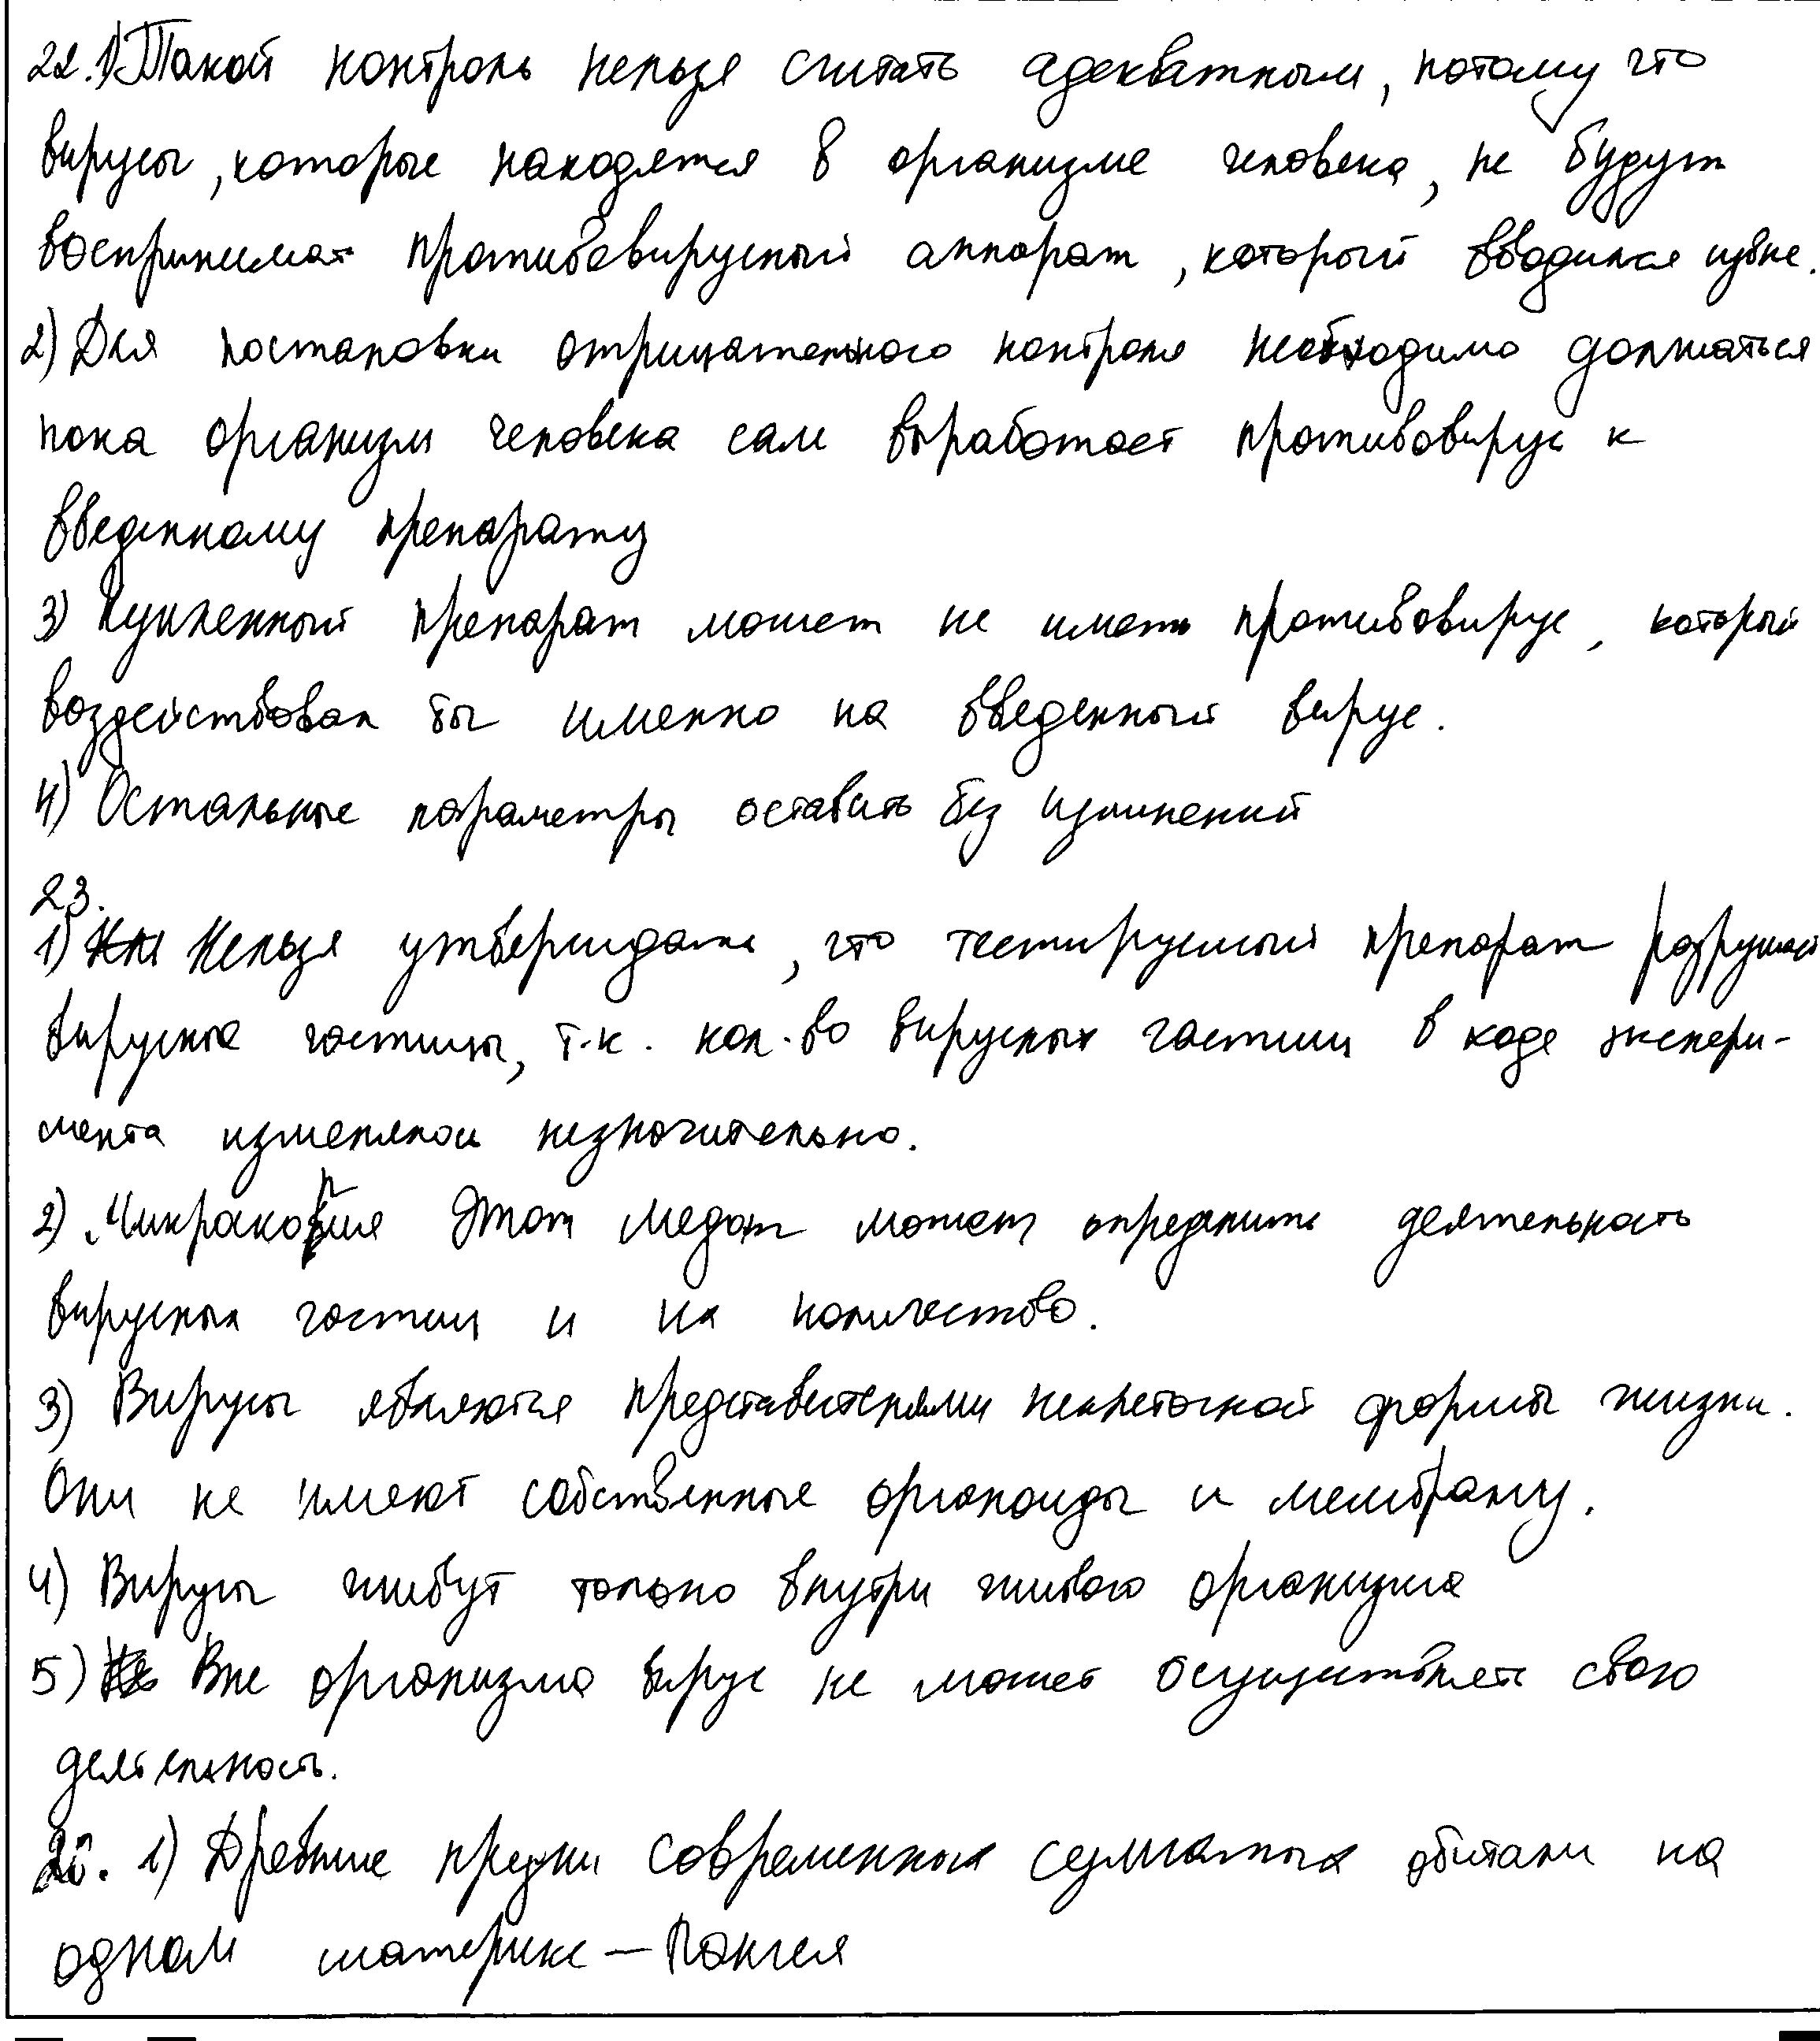 22. 1) Такой контроль нельзя считать адекватным, потому что
вирусы, которые находятся в организме человека, не будут
воспринимат противовирусный аппарат, который вводился извне.
2) Для постановки отрицательного контроля необходимо дожаться
пока организм человека сам выработает противовирус к
введенному препарату
3) Купленный препарат может не иметь противовирус, который
воздействовал бы именно на введенный вирус.
4) Остальные параметры оставить без изминений
23.
1) Нельзя утверждать, что тестируемый препарат разрушает
вирусные частицы, т.к. кол-во вирусных частиц в ходе экспери-
мента изменялось незначительно.
2) Микракопия Этот медот может определить деятельность
вирусных частиц и их количество.
3) Вирусы являются представителями неклеточной формы жизни.
Они не имеют собственные органоиды и мембрану.
4) Вирусы живут только внутри живого организма
5) Вне организма вирус не может осуществлять свою
деятельность.
25. 1) Древние предки современных сумчатых обитали на
одном материке — Пангея